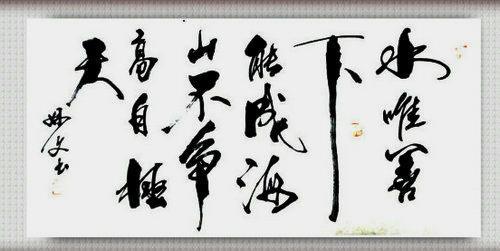 水唯善
下
能成海
山不争
高自極
天
妙文书